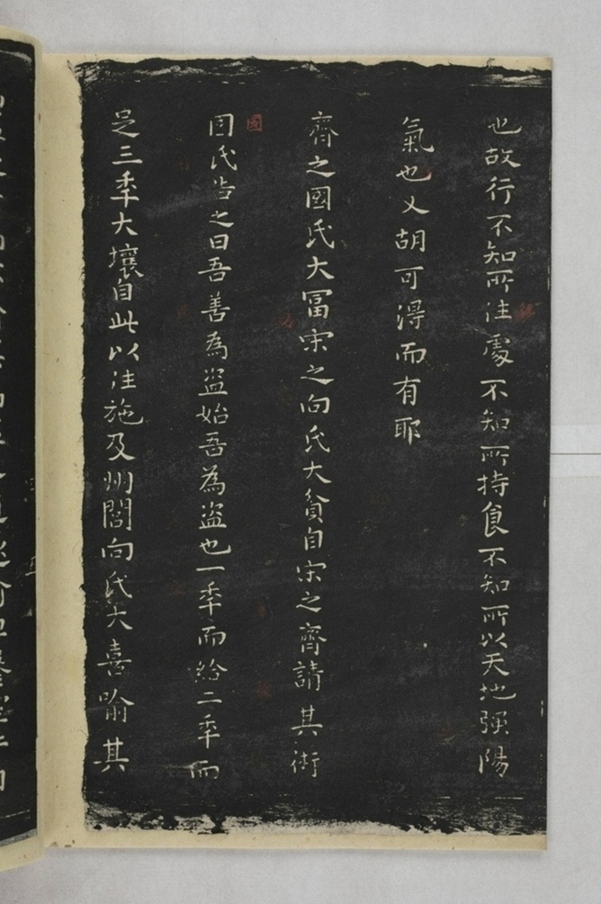 也故行不知所往處不知所持食不知所以天地强陽
氣也又胡可淂而有耶
齊之國氏大冨宋之向氏大貧自宋之齊請其術
国氏告之曰吾善為盜始吾為盜也一秊而給二秊而
足三秊大壤自此以往施及州閭向氏大喜喻其